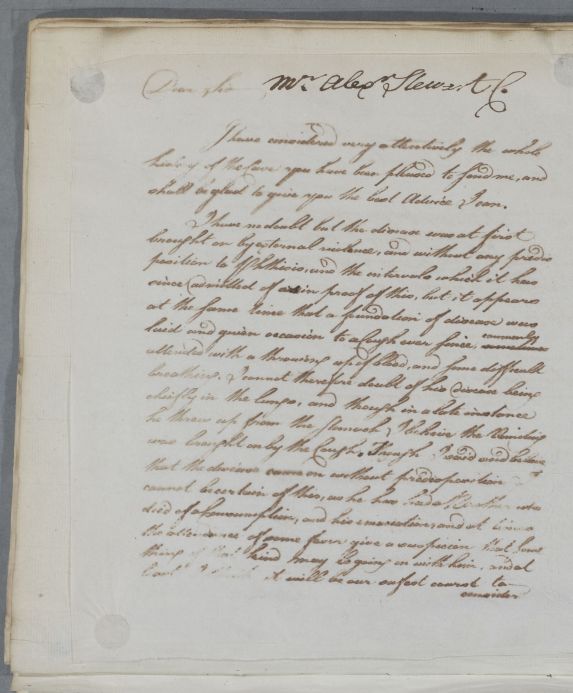 Dear Sir Mr. Alexr. Stewart C.
I have considered very attentively the whole
history of the Case you have been pleased to send me, and
shall be glad to give you the best Advice I can.
I have no doubt but the disease was at first
brought on by external violence, and without any predis
position to Phthisis, and the intervals which it has
since admitted of are in proof of this, but it appears
at the same time that a foundation of disease was
laid and given occasion to a cough ever since, commonly
attended with a throwing up of blood, and some difficult
breathing. I cannot therefore doubt of his disease being
chiefly in the lungs, and though in a late instance
he threw up from the Stomach, I believe the Vomiting
was brought on by the Cough. Though I said and believe
that the disease came on without predisposition I
cannot be certain of this, as he has had a Brother who
died of a Consumption, and his emaciation, and at times
the attendance of some fever give a suspicion that some
thing of that kind may be going on with him, and at
it will be our safest course to
consider